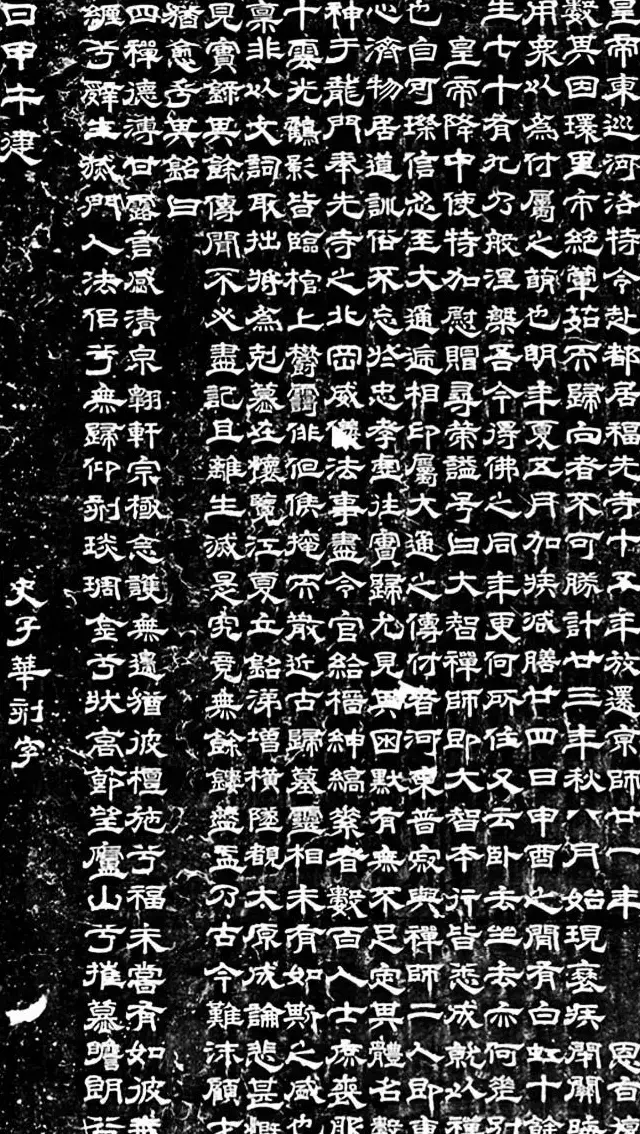 皇帝東巡河洛特令赴都居福先寺十五年放還京師廿一年 恩旨復
數其因環里市絕葷茹而歸向者不可勝計廿三年秋八月始現衰疾閉關晦
用衆以為付屬之萌也明年夏五月加疾減膳廿四日申酉之間有白虹十餘
生七十有九乃般涅槃吾今得佛之同年更何所住又云臥去坐去亦何差別
皇帝降中使特加慰賵尋策謚号曰大智禪師即大智本行皆悉成就以禪
也自可璨信忍至大通遞相印屬大通之傳付者河東普寂與禪師二人即東
心濟物居道訓俗不忘於忠孝虛往實歸尤見其困默有無不足定其體名數
神于龍門奉先寺之北岡威儀法事盡令官給搢紳縞素者數百人士庶喪服
十雲光鶴影皆臨棺上欝靄俳佪候掩而散近古歸墓靈相未有如斯之盛也
禀非以文詞取拙將為剋慕在懷覽江夏立銘涕增橫墜覩太原成論悲甚慨
見實録其餘傳聞不必盡記且離生滅是究竟無餘鏤盤盂乃古今難沫顧才
猶愈乎其銘曰
四禪德溥甘露言感清泉翺軒宗極念護無邊猶彼檀施兮福未嘗有如彼無
纏兮辤生滅門入法侶兮無歸仰刻琰琱金兮狀高節望廬山兮摧慕瞻朗谷
日甲午建 史子華刻字